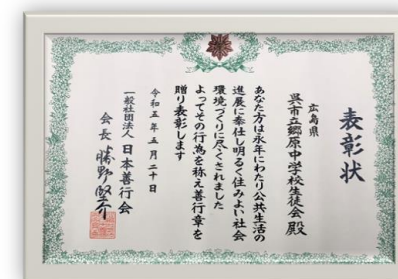 表彰状
広島県
呉市立郷原中学校生徒会殿
あなた方は永年にわたり公共生活の
進展に奉仕し明るく住みよい社会
環境づくりに尽くされました
よってその行為を称え善行章を
贈り表彰します
令和五年五月二十日
一般社団法人日本善行会
会長 勝野堅介